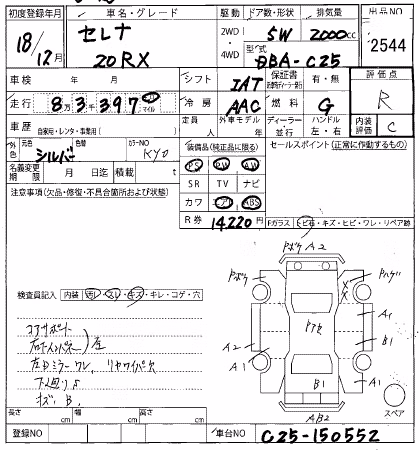 初度登録年月 車名・グレード 駆動 ドア数・形状 排気量 出品NO
18/12月 セレナ 20RX 2WD・4WD 5W 2000cc 2544
型式 DBA-C25
車検 年 月 シフト IAT 保証書 有・無 評価点
走行 8万3千397 km マイル 冷房 AAC 燃料 G R
車歴 自家用・レンタ・事業用( ) 定員 人 外車モデル 年 ディーラー 並行 ハンドル 左・右 内装評価 C
外色 元色 シルバー 色替 カラーNO KY0 装備品(純正品に限る) セールスポイント(正常に作動するもの)
名義変更期限 月 日迄 積載 t PS PW AW
SR TV ナビ
注意事項(欠品・修復・不具合箇所および状態) カワ エアB ABS
R券 14,220円 Fガラス トビ石・キズ・ヒビ・ワレ・リペア跡
検査員記入 内装 汚れ・スレ・キズ・キレ・コゲ・穴
コアサポート
右Fインパネ 左
左Dミラーワレ, リヤワイパー欠
下廻りS
キズ, B,
Pボケ A2
Pボケ Pハゲ
X X
A1
B1
A2
A1
A1
P7欠
B1
AB2
スペア
長さ cm 幅 cm 高さ cm
登録NO 車台NO C25-150552